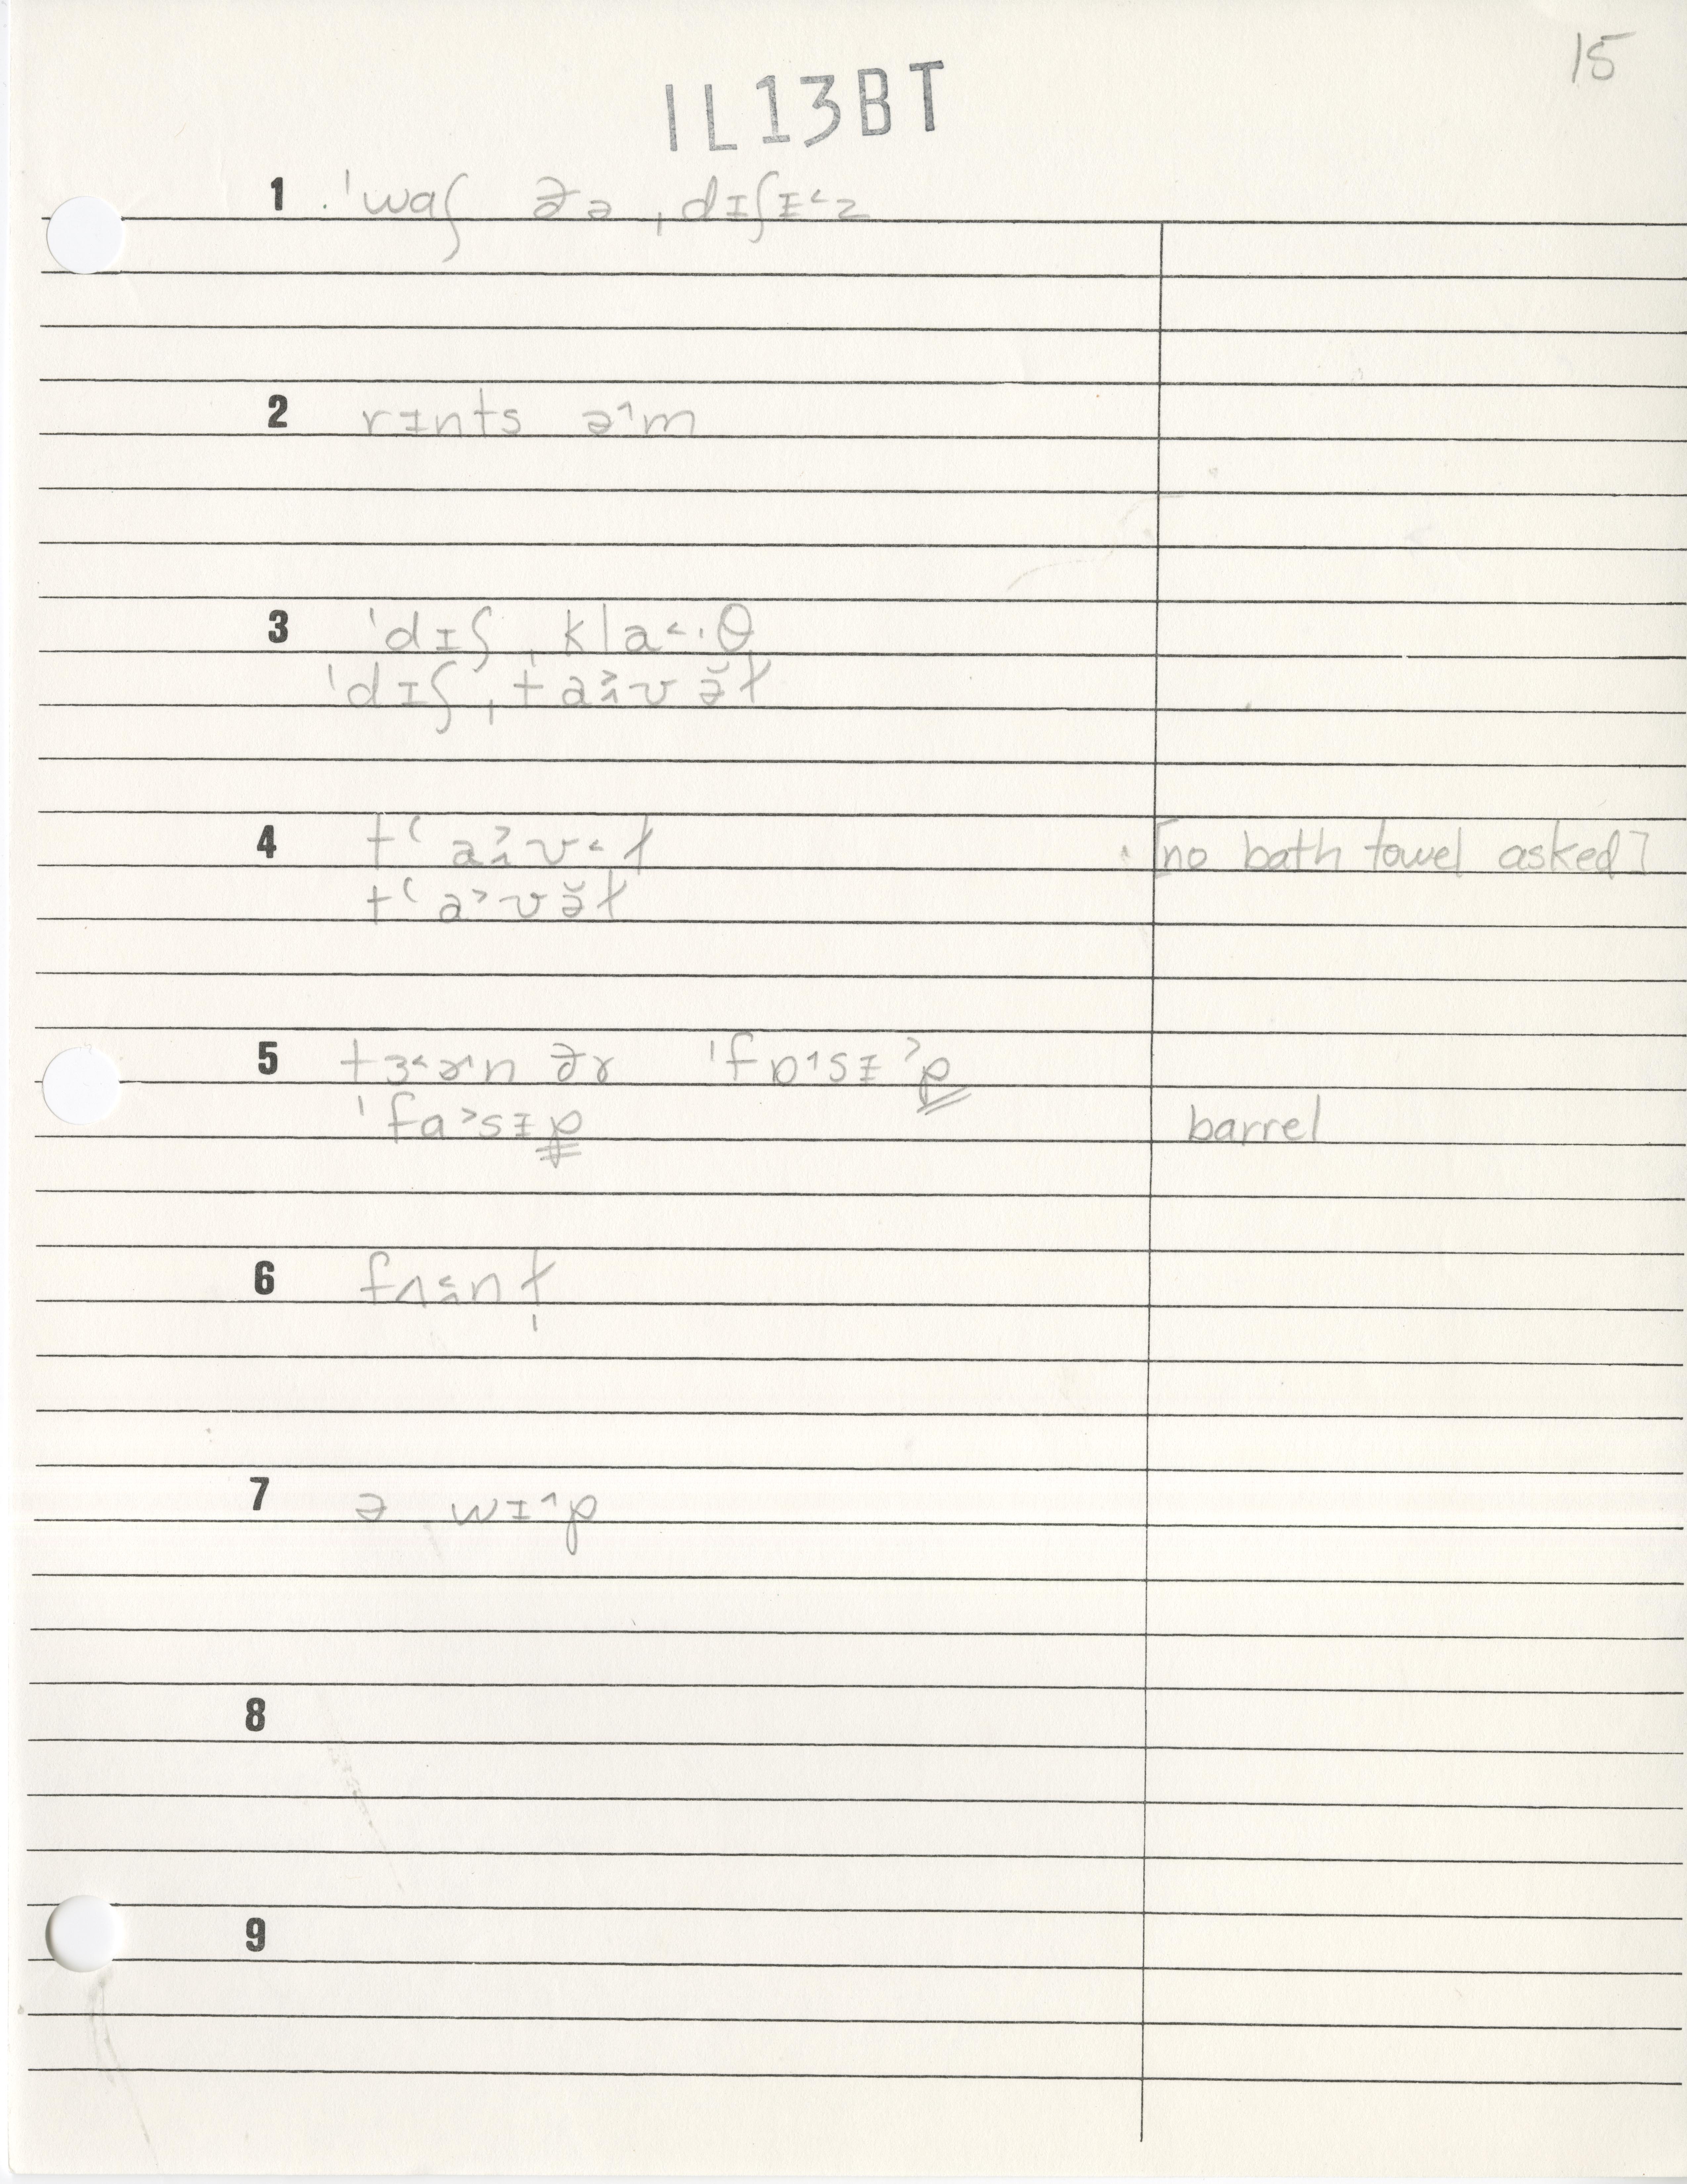 15
IL13BT
1 ˈwaʃ ðə ˌdɪʃɪ˂z
2 rɪnts ə˄m
3 ˈdɪʃ ˌkla˂·θ
ˈdɪʃ ˌta˃˄ʊ ə̆ɫ
4 tʻ a˃˄ʊ˂ɫ [no bath towel asked]
tʻ a˃ʊə̆ɫ
5 tɜ˂ɚn ðɚ ˈfɒ˄sɪ˃p
ˈfa˃sɪp barrel
6 fʌ˂˄nɫ̩
7 ə wɪ˄p
8
9